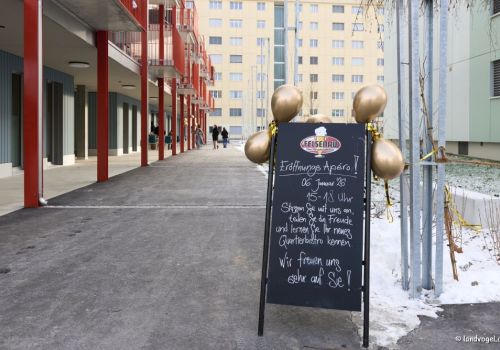 FELSENAU
Eröffnungs Apéro!
06. Januar '26
15-18 Uhr
Stossen Sie mit uns an,
teilen Sie die Freude
und lernen Sie Ihr neues
Quartierbistro kennen.
Wir freuen uns
sehr auf Sie!
© landvogel.c